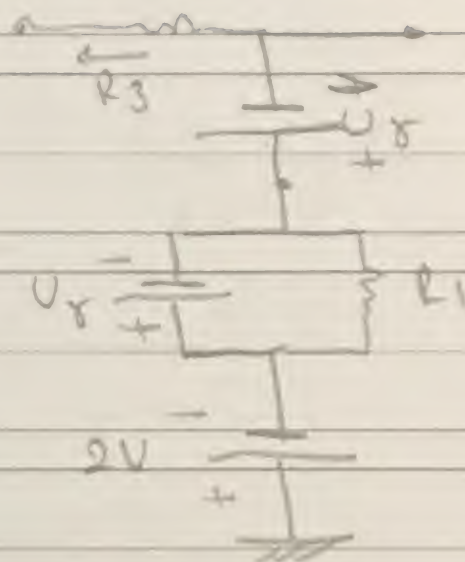 R3
Uγ
+
−
Uγ
R1
+
−
2V
+